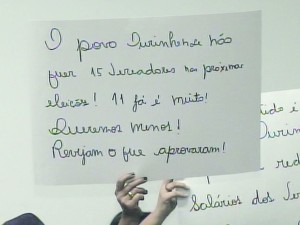 O povo Ourinhense não
quer 15 Vereadores nas próximas
eleições! 11 já é muito!
Queremos menos!
Revejam o que aprovaram!
do é
Ourin
red
Salários dos Ve